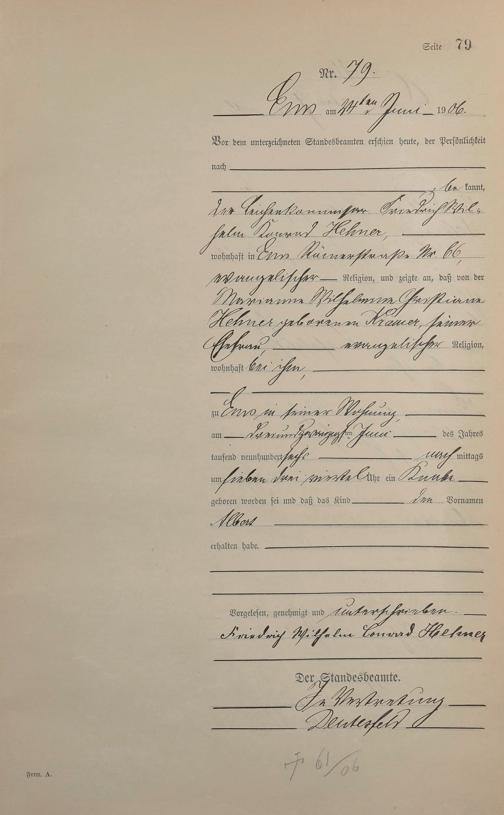 Seite 79
Nr. 79.
Ems am 24ten Juni 1906.
Vor dem unterzeichneten Standesbeamten erschien heute, der Persönlichkeit
nach
be kannt,
der Friedrich Wil-
helm Konrad Hehner,
wohnhaft in Ems Römerstraße Nr 66,
evangelischer Religion, und zeigte an, daß von der
Marianne Wilhelmine Christiane
Hehner geborenen Kramer, seiner
Ehefrau, evangelischer Religion,
wohnhaft bei ihm,
zu Ems in seiner Wohnung,
am dreiundzwanzigsten Juni des Jahres
tausend neunhundert sechs nach mittags
um sieben drei viertel Uhr ein Knabe
geboren worden sei und daß das Kind den Vornamen
Albert
erhalten habe.
Vorgelesen, genehmigt und unterschrieben.
Friedrich Wilhelm Conrad Hehner
Der Standesbeamte.
In Vertretung
† 61/06
Form. A.